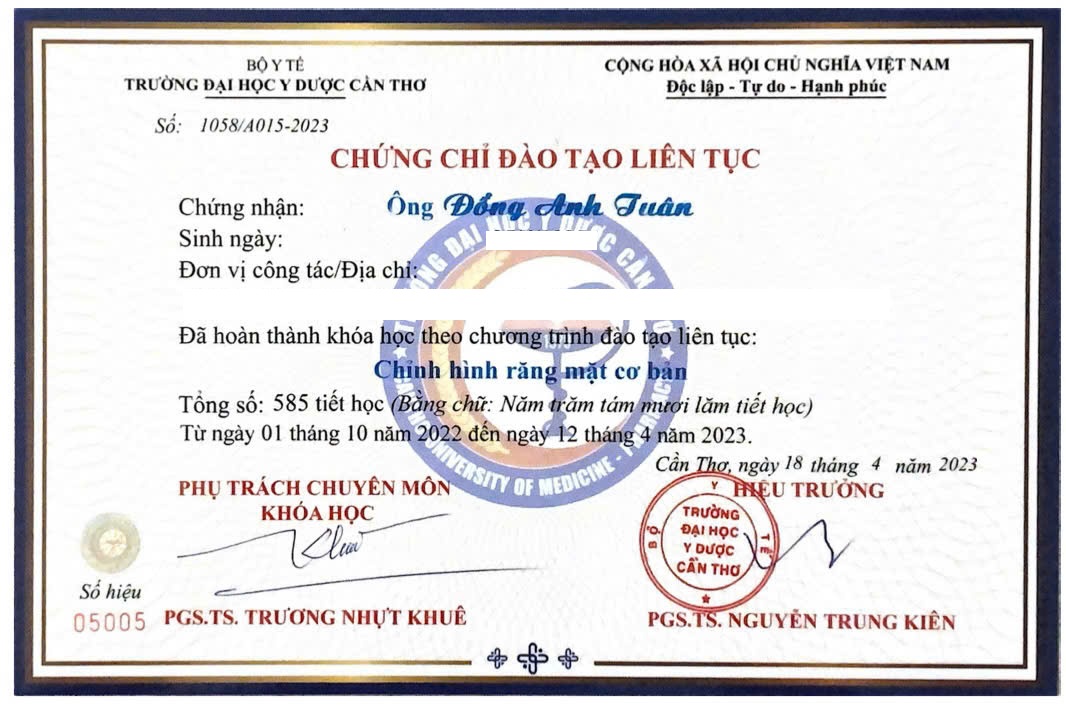 BỘ Y TẾ
TRƯỜNG ĐẠI HỌC Y DƯỢC CẦN THƠ
CỘNG HÒA XÃ HỘI CHỦ NGHĨA VIỆT NAM
Độc lập - Tự do - Hạnh phúc
Số: 1058/A015-2023
CHỨNG CHỈ ĐÀO TẠO LIÊN TỤC
Chứng nhận: Ông Đồng Anh Tuân
Sinh ngày:
Đơn vị công tác/Địa chỉ:
Đã hoàn thành khóa học theo chương trình đào tạo liên tục:
Chỉnh hình răng mặt cơ bản
Tổng số: 585 tiết học (Bằng chữ: Năm trăm tám mươi lăm tiết học)
Từ ngày 01 tháng 10 năm 2022 đến ngày 12 tháng 4 năm 2023.
Cần Thơ, ngày 18 tháng 4 năm 2023
PHỤ TRÁCH CHUYÊN MÔN
KHÓA HỌC
HIỆU TRƯỞNG
BỘ Y TẾ
TRƯỜNG
ĐẠI HỌC
Y DƯỢC
CẦN THƠ
Số hiệu
05005
PGS.TS. TRƯƠNG NHỰT KHUÊ
PGS.TS. NGUYỄN TRUNG KIÊN
UNIVERSITY OF MEDICINE